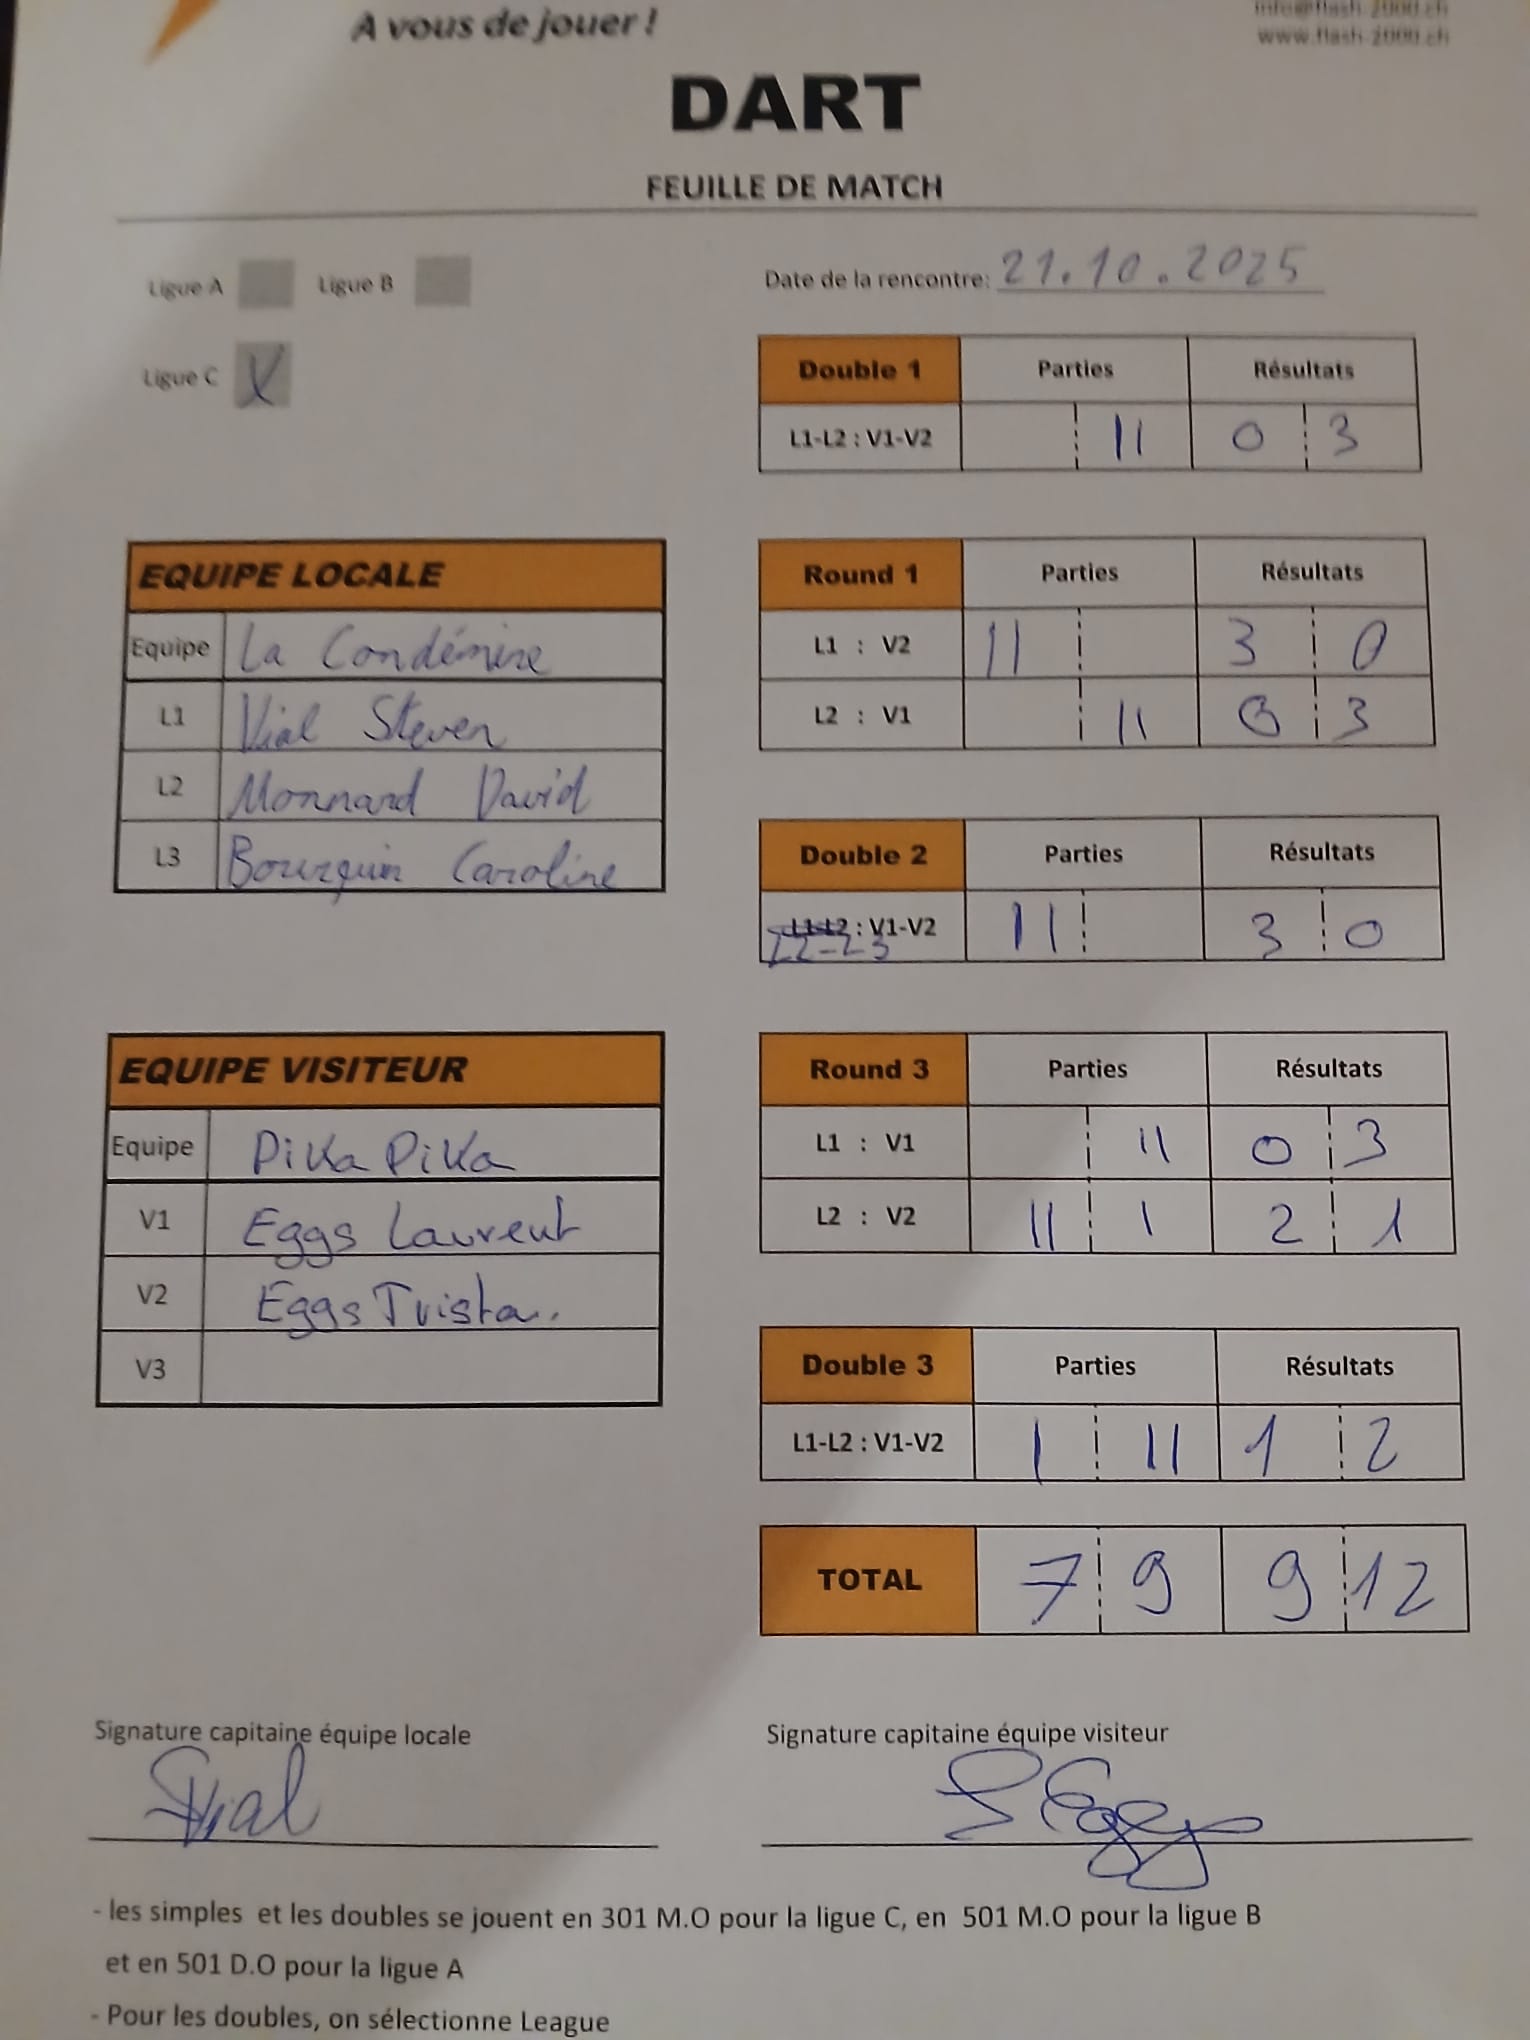 A vous de jouer !
info@flash-2000.ch
www.flash-2000.ch
DART
FEUILLE DE MATCH
Ligue A Ligue B
Date de la rencontre: 21.10.2025
Ligue C X
Double 1 Parties Résultats
L1-L2 : V1-V2 II 0 3
EQUIPE LOCALE
Equipe La Condémine
L1 Vial Steven
L2 Monnard David
L3 Bourquin Caroline
Round 1 Parties Résultats
L1 : V2 II 3 0
L2 : V1 II 0 3
Double 2 Parties Résultats
L1-L2 : V1-V2 II 3 0
L2-L3
EQUIPE VISITEUR
Equipe Pika Pika
V1 Eggs Laurent
V2 Eggs Trista.
V3
Round 3 Parties Résultats
L1 : V1 II 0 3
L2 : V2 II I 2 1
Double 3 Parties Résultats
L1-L2 : V1-V2 I II 1 2
TOTAL 7 9 9 12
Signature capitaine équipe locale
SVial
Signature capitaine équipe visiteur
- les simples et les doubles se jouent en 301 M.O pour la ligue C, en 501 M.O pour la ligue B
et en 501 D.O pour la ligue A
- Pour les doubles, on sélectionne League